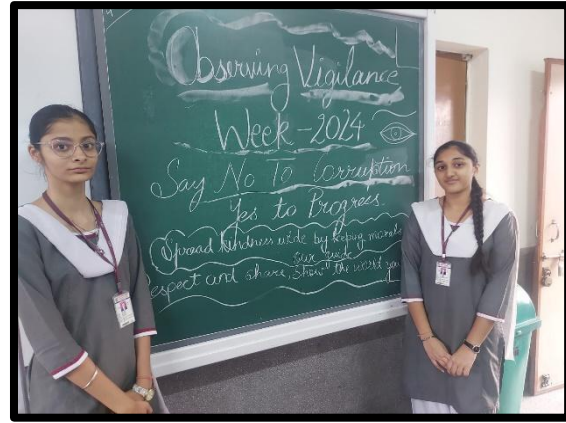 Observing Vigilance
Week - 2024
Say No To Corruption
Yes to Progress.
Spread kindness wide by keeping morals
our guide
Respect and share, Show the world you